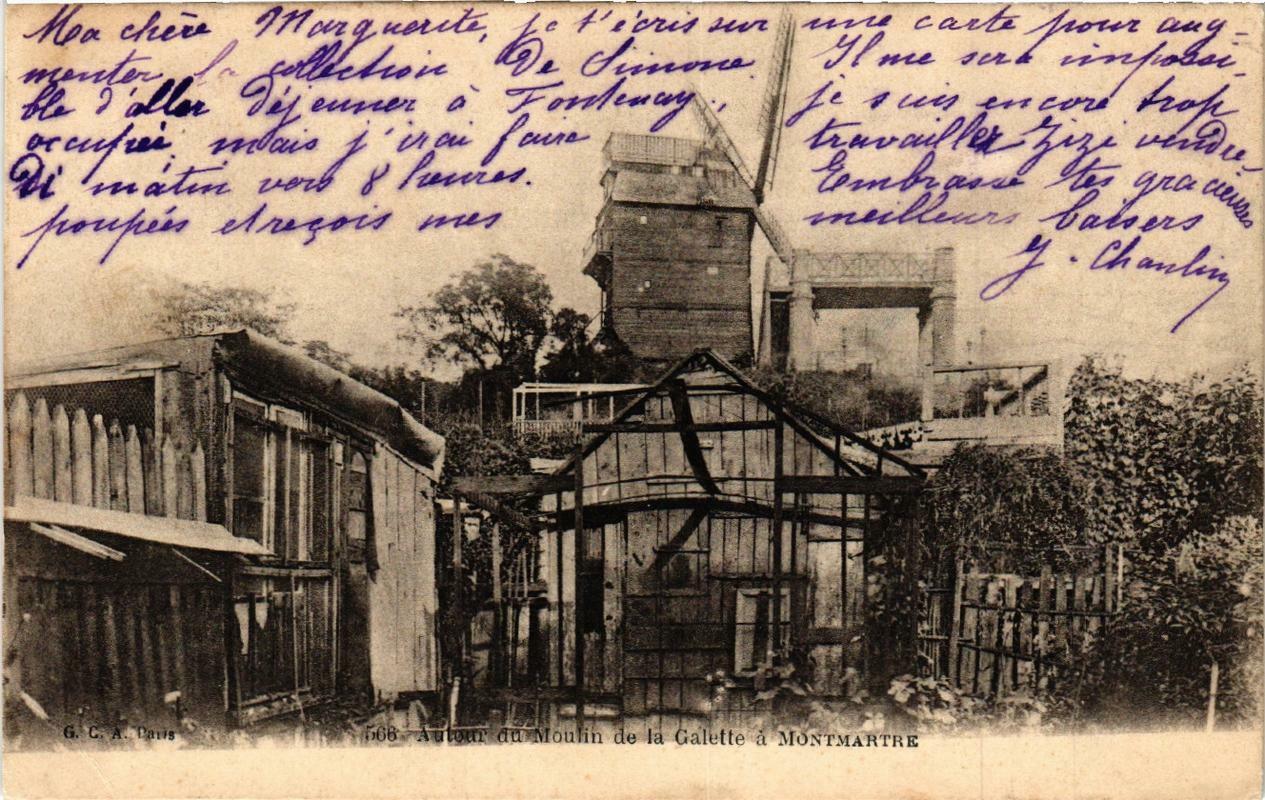 Ma chère Marguerite, je t'écris sur une carte pour aug-
menter la collection De Simone. Il me sera impossi-
ble d'aller déjeuner à Fontenay, je suis encore trop
occupée, mais j'irai faire travailler Zizi vendre-
Di matin vers 8 heures. Embrasse tes gracieuses
poupées et reçois mes meilleurs baisers
J. Chanlin
G. C. A. Paris
566 Autour du Moulin de la Galette à MONTMARTRE